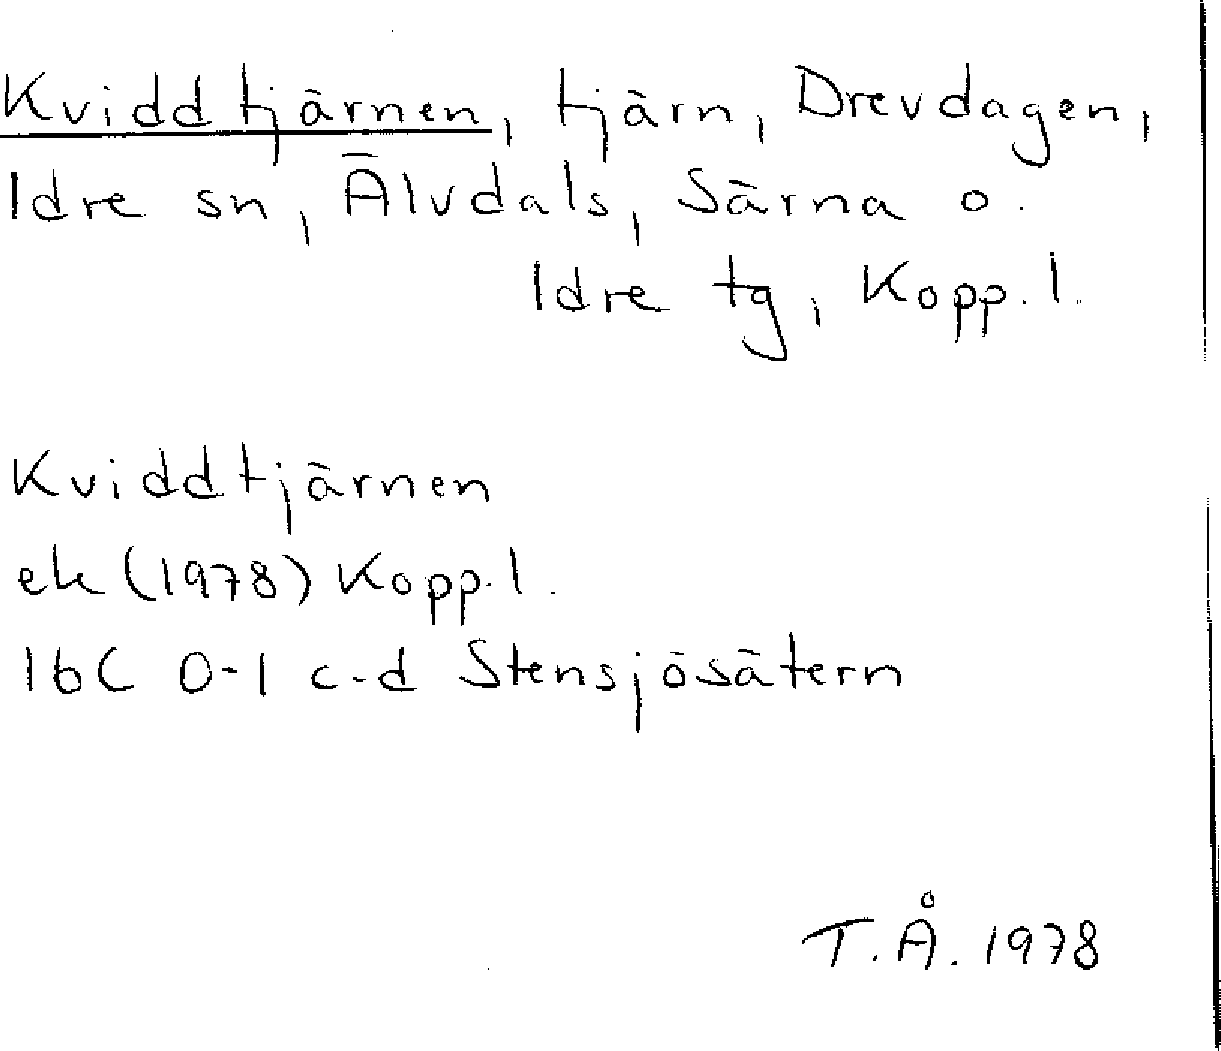 Kviddtjärnen, tjärn, Drevdagen,
Idre sn, Älvdals, Särna o.
Idre tg, Kopp. l.
Kviddtjärnen
ek (1978) Kopp. l.
16C 0-1 c-d Stensjösätern
T.Å. 1978